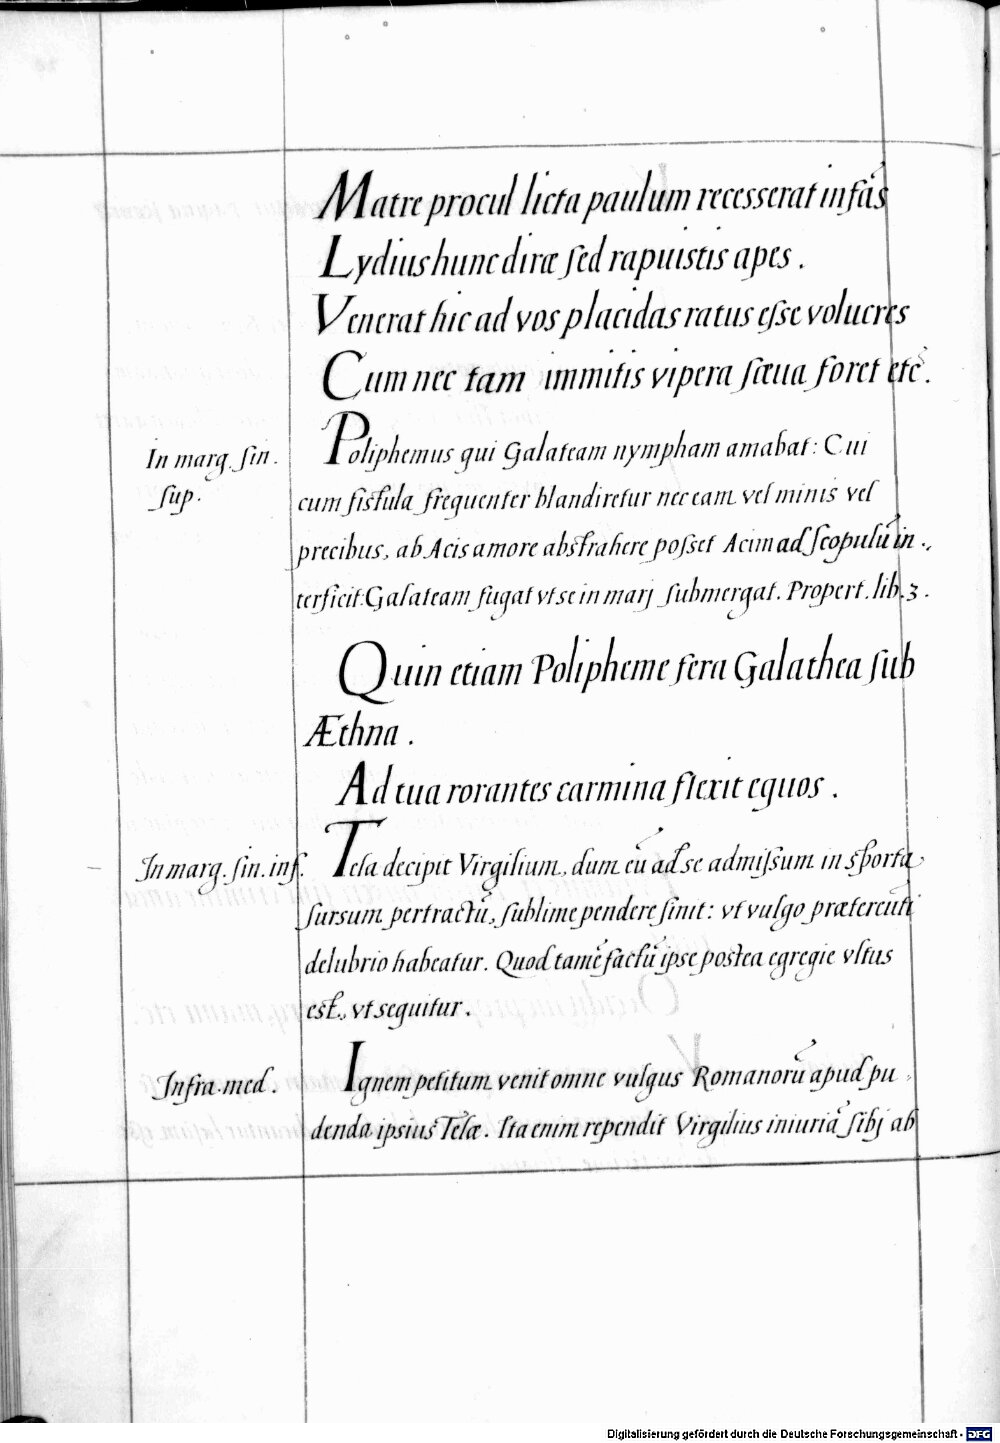 Matre procul licta paulum recesserat infãs
Lydius hunc diræ ſed rapuistis apes .
Venerat hic ad vos placidas ratus eſse volucres
Cum nec tam immitis vipera ſæua foret etc̃ .
In marg. ſin .
ſup .
Poliphemus qui Galateam nympham amabat: Cui
cum fistula frequenter blandiretur nec eam vel minis vel
precibus, ab Acis amore abstrahere poſset Acim ad ſcopulũ in .,
terficit: Galateam fugat vt se in marj ſubmergat. Propert. lib. 3 .
Quin etiam Polipheme fera Galathea ſub
Æthna .
Ad tua rorantes carmina flexit equos .
In marg. ſin. inf.
Tela decipit Virgilium, dum eũ ad se admiſsum in sporta,
ſursum pertractũ, ſublime pendere ſinit: vt vulgo prætereũti
delubrio habeatur. Quod tamẽ factũ ipse postea egregie vltus
est, vt sequitur .
Infra med .
Ignem petitum venit omne vulgus Romanorũ apud pu ,
denda ipsius Telæ. Ita enim rependit Virgilius iniuriã ſibj ab
Digitalisierung gefördert durch die Deutsche Forschungsgemeinschaft - DFG